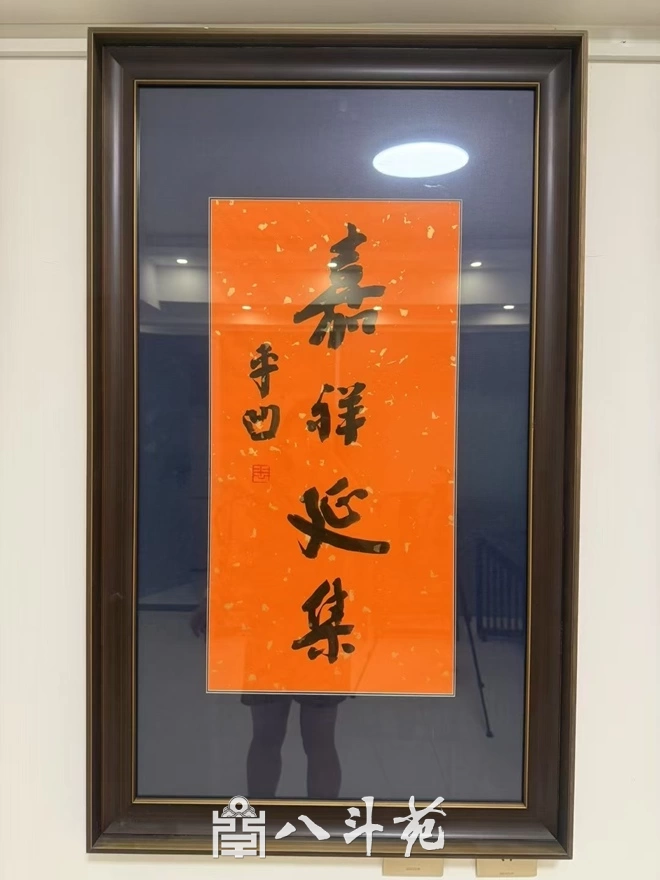 嘉祥延集
平凹
八斗苑